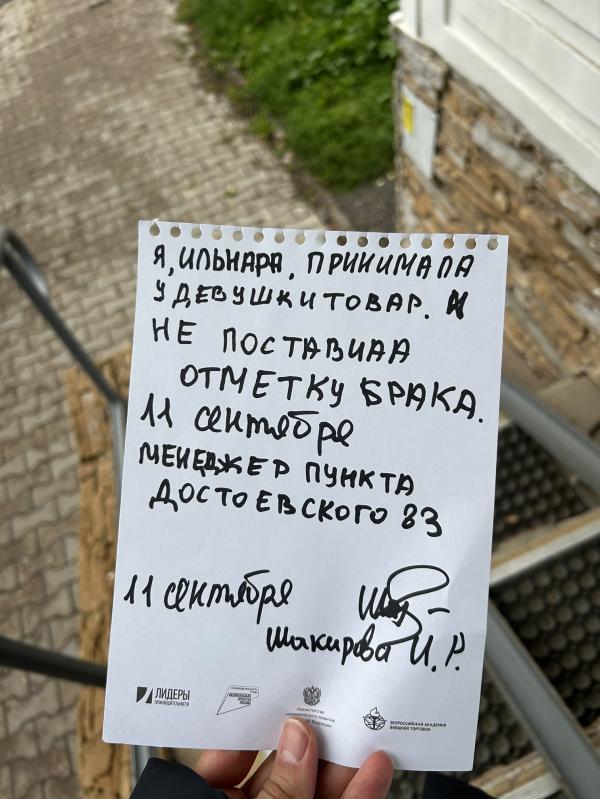 Я, ИЛЬНАРА, ПРИНИМАЛА
У ДЕВУШКИ ТОВАР. И
НЕ ПОСТАВИЛА
ОТМЕТКУ БРАКА.
11 сентября
МЕНЕДЖЕР ПУНКТА
ДОСТОЕВСКОГО 83
11 сентября
Шакирова И. Р.
ЛИДЕРЫ
ПРОИЗВОДИТЕЛЬНОСТИ
МИНИСТЕРСТВО
ЭКОНОМИЧЕСКОГО РАЗВИТИЯ
ВСЕРОССИЙСКАЯ АКАДЕМИЯ
ВНЕШНЕЙ ТОРГОВЛИ